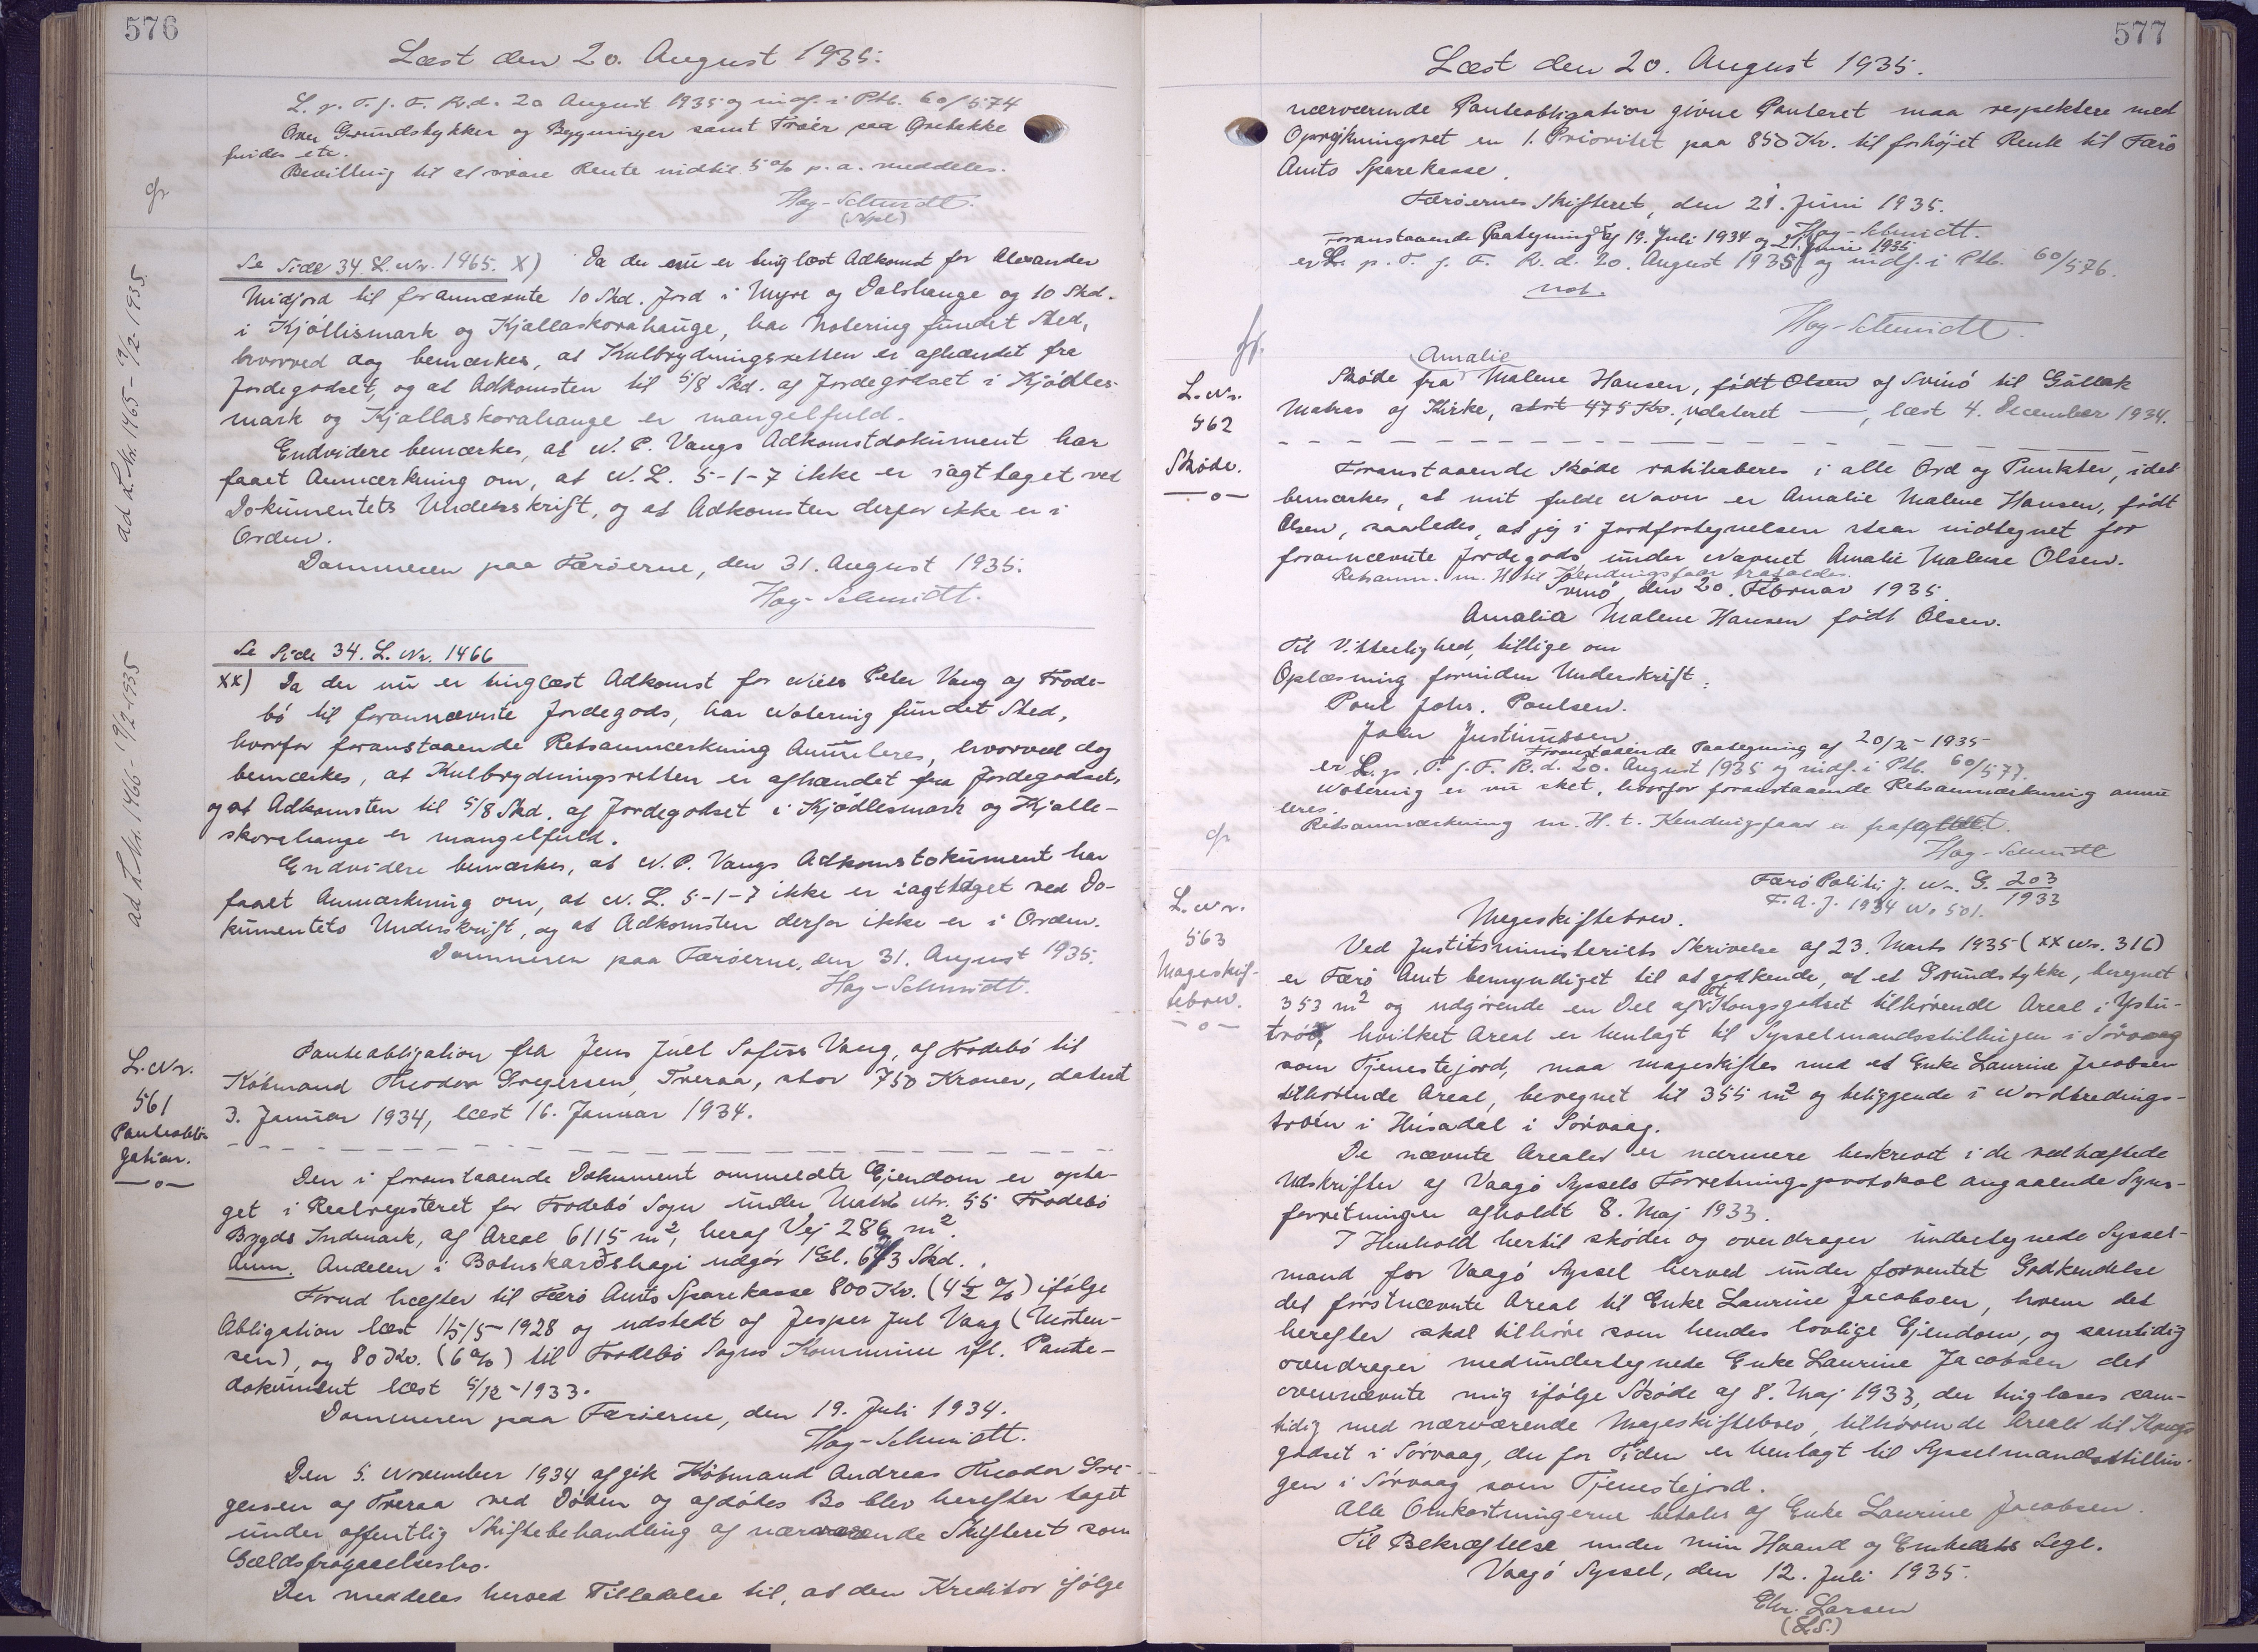 576
Læst den 20. August 1935.
L. p. T. f. F. R.d. 20 August 1935 og indf. i Ptb. 60/574
Over Grundstykker og Bygninger samt Tröer paa Örebakke
findes etc.
Bevilling til at svare Rente indtil 5 % p. a. meddeles.
Hay-Schmidt.
(Npl)
Se Side 34 L. Nr. 1465. X) Da der nu er tinglæst Adkomst for Alexander
Midjord til forannævnte 10 Skd. Jord i Myre og Dalshauge og 10 Skd.
i Kjöllismark og Kjallaskorahauge, har Notering fundet Sted,
hvorved dog bemærkes, at Kulbrydningsretten er afhændet fra
Jordegodset, og at Adkomsten til 5/8 Skd. af Jordegodset i Kjödles-
mark og Kjallaskorahauge er mangelfuld.
Endvidere bemærkes, at N. P. Vangs Adkomstdokument har
faaet Anmærkning om, at N. L. 5-1-7 ikke er iagttaget ved
Dokumentets Underskrift, og at Adkomsten derfor ikke er i
Orden.
Dommeren paa Færöerne, den 31. August 1935.
Hay-Schmidt.
ad L. Nr. 1465 - 19/2-1935
Se Side 34. L. Nr. 1466
XX) Da der nu er tinglæst Adkomst for Niels Peter Vang af Frode-
bö til forannævnte Jordegods, har Notering fundet Sted,
hvorfor foranstaaende Retsanmærkning annulleres, hvorved dog
bemærkes, at Kulbrydningsretten er afhændet fra Jordegodset,
og at Adkomsten til 5/8 Skd. af Jordegodset i Kjödlesmark og Kjalle-
skorahauge er mangelfuld.
Endvidere bemærkes, at N. P. Vangs Adkomstokument har
faaet Anmærkning om, at N. L. 5-1-7 ikke er iagttaget ved Do-
kumentets Underskrift, og at Adkomsten derfor ikke er i Orden.
Dommeren paa Færöerne, den 31. August 1935.
Hay-Schmidt.
ad L. Nr. 1466 - 19/2-1935
L. Nr.
561
Panteobli-
gation.
—o—
Panteobligation fra Jens Juel Sofus Vang, af Frodebö til
Köbmand Theodor Gregersen, Tveraa, stor 750 Kroner, dateret
3. Januar 1934, læst 16. Januar 1934.
Den i foranstaaende Dokument ommeldte Ejendom er opta-
get i Realregisteret for Frodebö Sogn under Matr. Nr. 55 Frodebö
Bygds Indmark, af Areal 6115 m², heraf Vej 286 m².
Anm. Andelen i Botnskarðshagi udgör 1 Gl. 6 3 Skd.
Forud hæfter til Færö Amts Sparekasse 800 Kr. (4½ %) ifölge
Obligation læst 15/5-1928 og udstedt af Jesper Jul Vang (Morten-
sen), og 80 Kr. (6 %) til Frodebö Sogns Kommune ifl. Pante-
dokument læst 5/12-1933.
Dommeren paa Færöerne, den 19. Juli 1934.
Hay-Schmidt.
Den 5. November 1934 afgik Köbmand Andreas Theodor Gre-
gersen af Tveraa ved Döden og afdödes Bo blev herefter taget
under offentlig Skiftebehandling af nærværende Skifteret som
Gældsfragaaelsesbo.
Der meddeles herved Tilladelse til, at den Kreditor ifölge
577
Læst den 20. August 1935.
nærværende Panteobligation givne Panteret maa respektere med
Oprykningsret en 1. Prioritet paa 850 Kr. til forhöjet Rente til Færö
Amts Sparekasse.
Færöernes Skifteret, den 21. Juni 1935.
Hay-Schmidt.
Foranstaaende Paategning af 19. Juli 1934 og 21. Juni 1935
er L. p. T. f. F. R. d. 20. August 1935 og indf. i Ptb. 60/576.
Not.
Hay-Schmidt.
L. Nr.
562
Sköde.
—o—
Amalie
Sköde fra Malene Hansen, födt Olsen af Svinö til Gullak
Matras af Kirke, stort 475 Kr., udateret —, læst 4. December 1934.
Foranstaaende Sköde ratihaberes i alle Ord og Punkter, idet
bemærkes, at mit fulde Navn er Amalie Malene Hansen, födt
Olsen, saaledes, at jeg i Jordfortegnelsen staar indtegnet for
forannævnte Jordegods under Navnet Amalie Malene Olsen.
Retsanm. m. H. til Kendingsfaar frafaldes.
Svinö, den 20. Februar 1935.
Amalia Malene Hansen födt Olsen.
Til Vitterlighed, tillige om
Oplæsning forinden Underskrift:
Poul Johs. Poulsen.
Joen Justinussen.
Foranstaaende Paategning af 20/2-1935
er L. p. T. f. F. R. d. 20. August 1935 og indf. i Ptb. 60/577.
Notering er nu sket, hvorfor foranstaaende Retsanmærkning annul
leres.
Retsanmærkning m. H. t. Kendingsfaar er frafaldet.
Hay-Schmidt
L. Nr.
563
Mageskif-
tebrev.
—o—
Færö Politi J. Nr. G. 203/1933
F. A. J. 1934 No 501.
Mageskiftebrev.
Ved Justitsministeriets Skrivelse af 23. Marts 1935 (XX Nr. 316)
er Færö Amt bemyndiget til at godkende, at et Grundstykke, beregnet
353 m² og udgörende en Del af et Kongsgodset tilhörende Areal i Ystu-
tröð, hvilket Areal er henlagt til Sysselmandsstillingen i Sörvaag
som Tjenestejord, maa mageskiftes med et Enke Laurine Jacobsen
tilhörende Areal, beregnet til 355 m² og beliggende i Nordbrednings-
tröen i Húsadal i Sörvaag.
De nævnte Arealer er nærmere beskrevet i de vedhæftede
Udskrifter af Vaagö Syssels Forretningsprotokol angaaende Syns-
forretninger afholdt 8. Maj 1933.
I Henhold hertil sköder og overdrager undertegnede Syssel-
mand for Vaagö Syssel herved under forventet Godkendelse
det förstnævnte Areal til Enke Laurine Jacobsen, hvem det
herefter skal tilhöre som hendes lovlige Ejendom, og samtidig
overdrager medundertegnede Enke Laurine Jacobsen det
ovennævnte mig ifölge Sköde af 8. Maj 1933, der tinglæses sam-
tidig med nærværende Mageskiftebrev, tilhörende Areal til Kongs-
godset i Sörvaag, der for Tiden er henlagt til Sysselmandsstillin-
gen i Sörvaag som Tjenestejord.
Alle Omkostningerne betales af Enke Laurine Jacobsen.
Til Bekræftelse under min Haand og Embedets Segl.
Vaagö Syssel, den 12. Juli 1935.
Chr. Larsen
(L.S.)